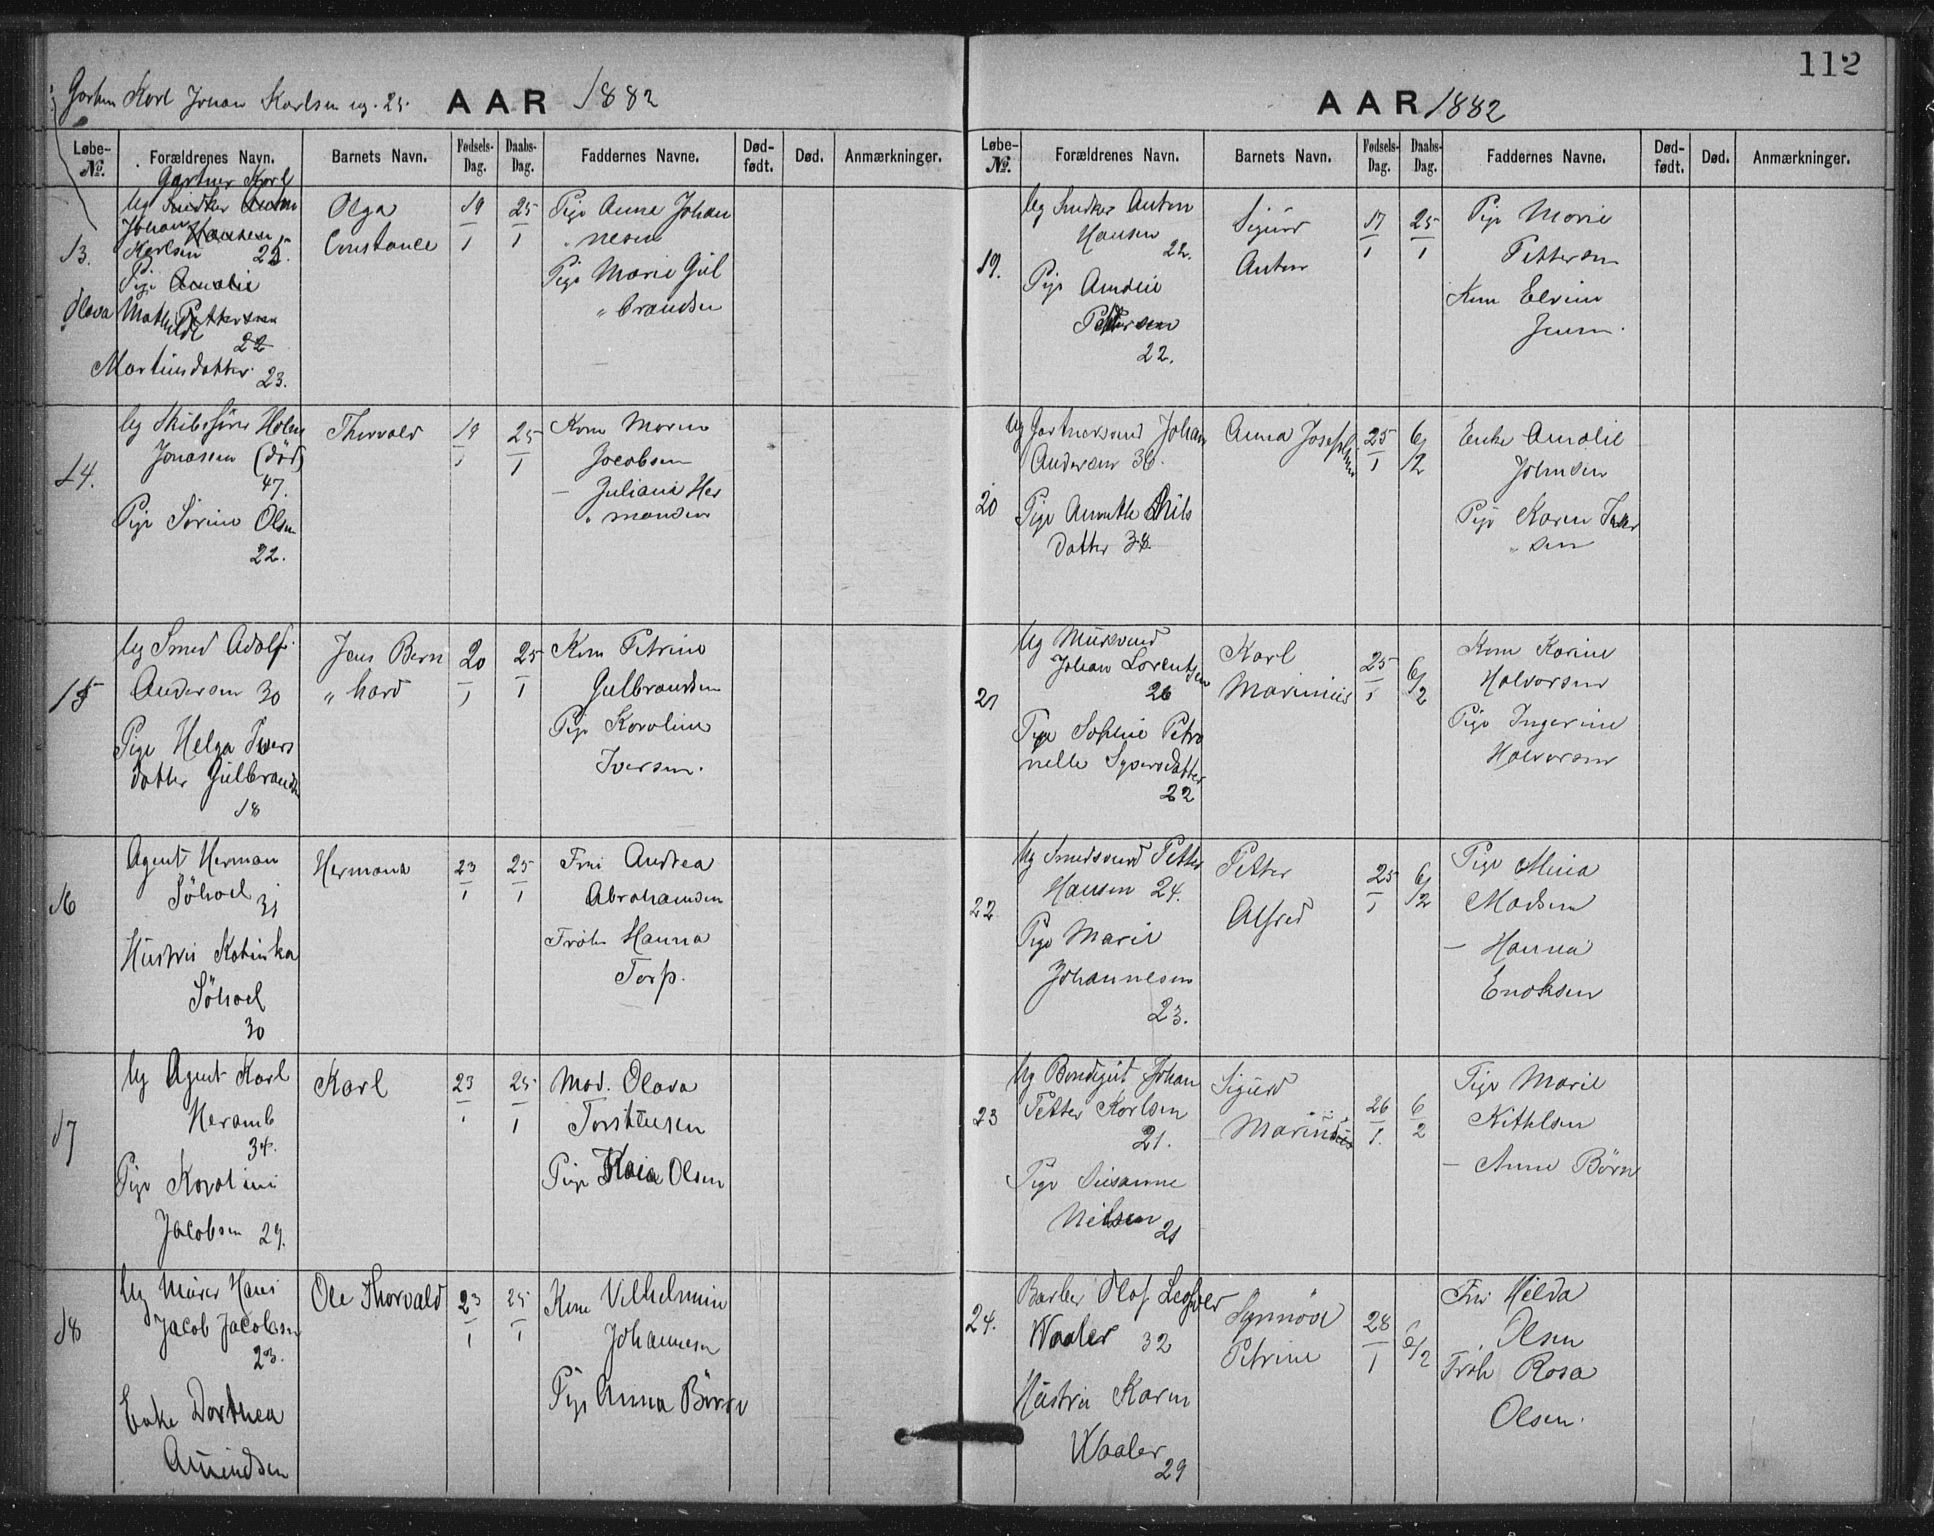 112
Gartner Karl Johan Karlsen ug. 25.
AAR 1882
Løbe-№.
Forældrenes Navn.
Barnets Navn.
Fødsels-Dag.
Daabs-Dag.
Faddernes Navne.
Død-født.
Død.
Anmærkninger.
13.
Gartner Karl
Ug Snedker Anton
Johan Hansen
Karlsen 25.
Pige Amalie
Olava Mathilde Pettersen
22
Martinsdatter 23.
Olga
Constance
19/1
25/1
Pige Anne Johan
" nesen
Pige Marie Gul
" brandsen
14.
Ug Skibsfører Holm
Jonasen (død)
47.
Pige Sorine Olsen
22.
Thorvald
19/1
25/1
Kone Maren
Jacobsen
— Juliane Her
" mansen
15
Ug Smed Adolf
Andersen 30
Pige Helga Ivers
datter Gulbrandsen
18
Jens Bern
" hard
20/1
25/1
Kone Petrine
Gulbrandsen
Pige Karoline
Iversen.
16
Agent Herman
Söhoel 31
Hustru Katinka
Söhoel
30
Hermana
23/1
25/1
Fru Andrea
Abrahamsen
Frøken Hanna
Torp.
17
Ug Agent Karl
Heramb
34.
Pige Karoline
Jacobsen 29.
Karl
23/1
25/1
Mad. Olava
Torstensen
Pige Kaia Olsen
18
Ug Murer Hans
Jacob Jacobsen
23.
Enke Dorthea
Amundsen
Ole Thorvald
23/1
25/1
Kone Vilhelmine
Johannesen
Pige Anna Börre
AAR 1882
Løbe-№.
Forældrenes Navn.
Barnets Navn.
Fødsels-Dag.
Daabs-Dag.
Faddernes Navne.
Død-født.
Død.
Anmærkninger.
19.
Ug Snedker Anton
Hansen
22.
Pige Amalie
Pettersen
22.
Sigurd
Anton
17/1
25/1
Pige Marie
Pettersen
Kone Elvine
Jensen.
20
Ug Gartnersvend Johan
Andersen 36.
Pige Annethe Nils
datter 38.
Anna Josephine
25/1
6/2
Enke Amalie
Johnsen
Pige Karen Iver
" sen
21
Ug Mursvend
Johan Lorentsen
26
Pige Sophie Petro
nelle Syversdatter
22
Karl
Marinius
25/1
6/2
Kone Karine
Halvorsen
Pige Ingerine
Halvorsen
22
Ug Smedsvend Petter
Hansen 24.
Pige Marie
Johannesen
23.
Petter
Alfred
25/1
6/2
Pige Mina
Madsen
— Hanna
Enoksen
23
Ug Bondegut Johan
Petter Karlsen
21.
Pige Susanne
Nilsen 21
Sigurd
Marinius
26/1.
6/2
Pige Marie
Kittelsen
— Anne Börre
24.
Barber Olaf
Waaler 32
Hustru Karen
Waaler
29
Synnöve
Petrine
28/1
6/2
Fru Hilda
Olsen
Frøk Rosa
Olsen.